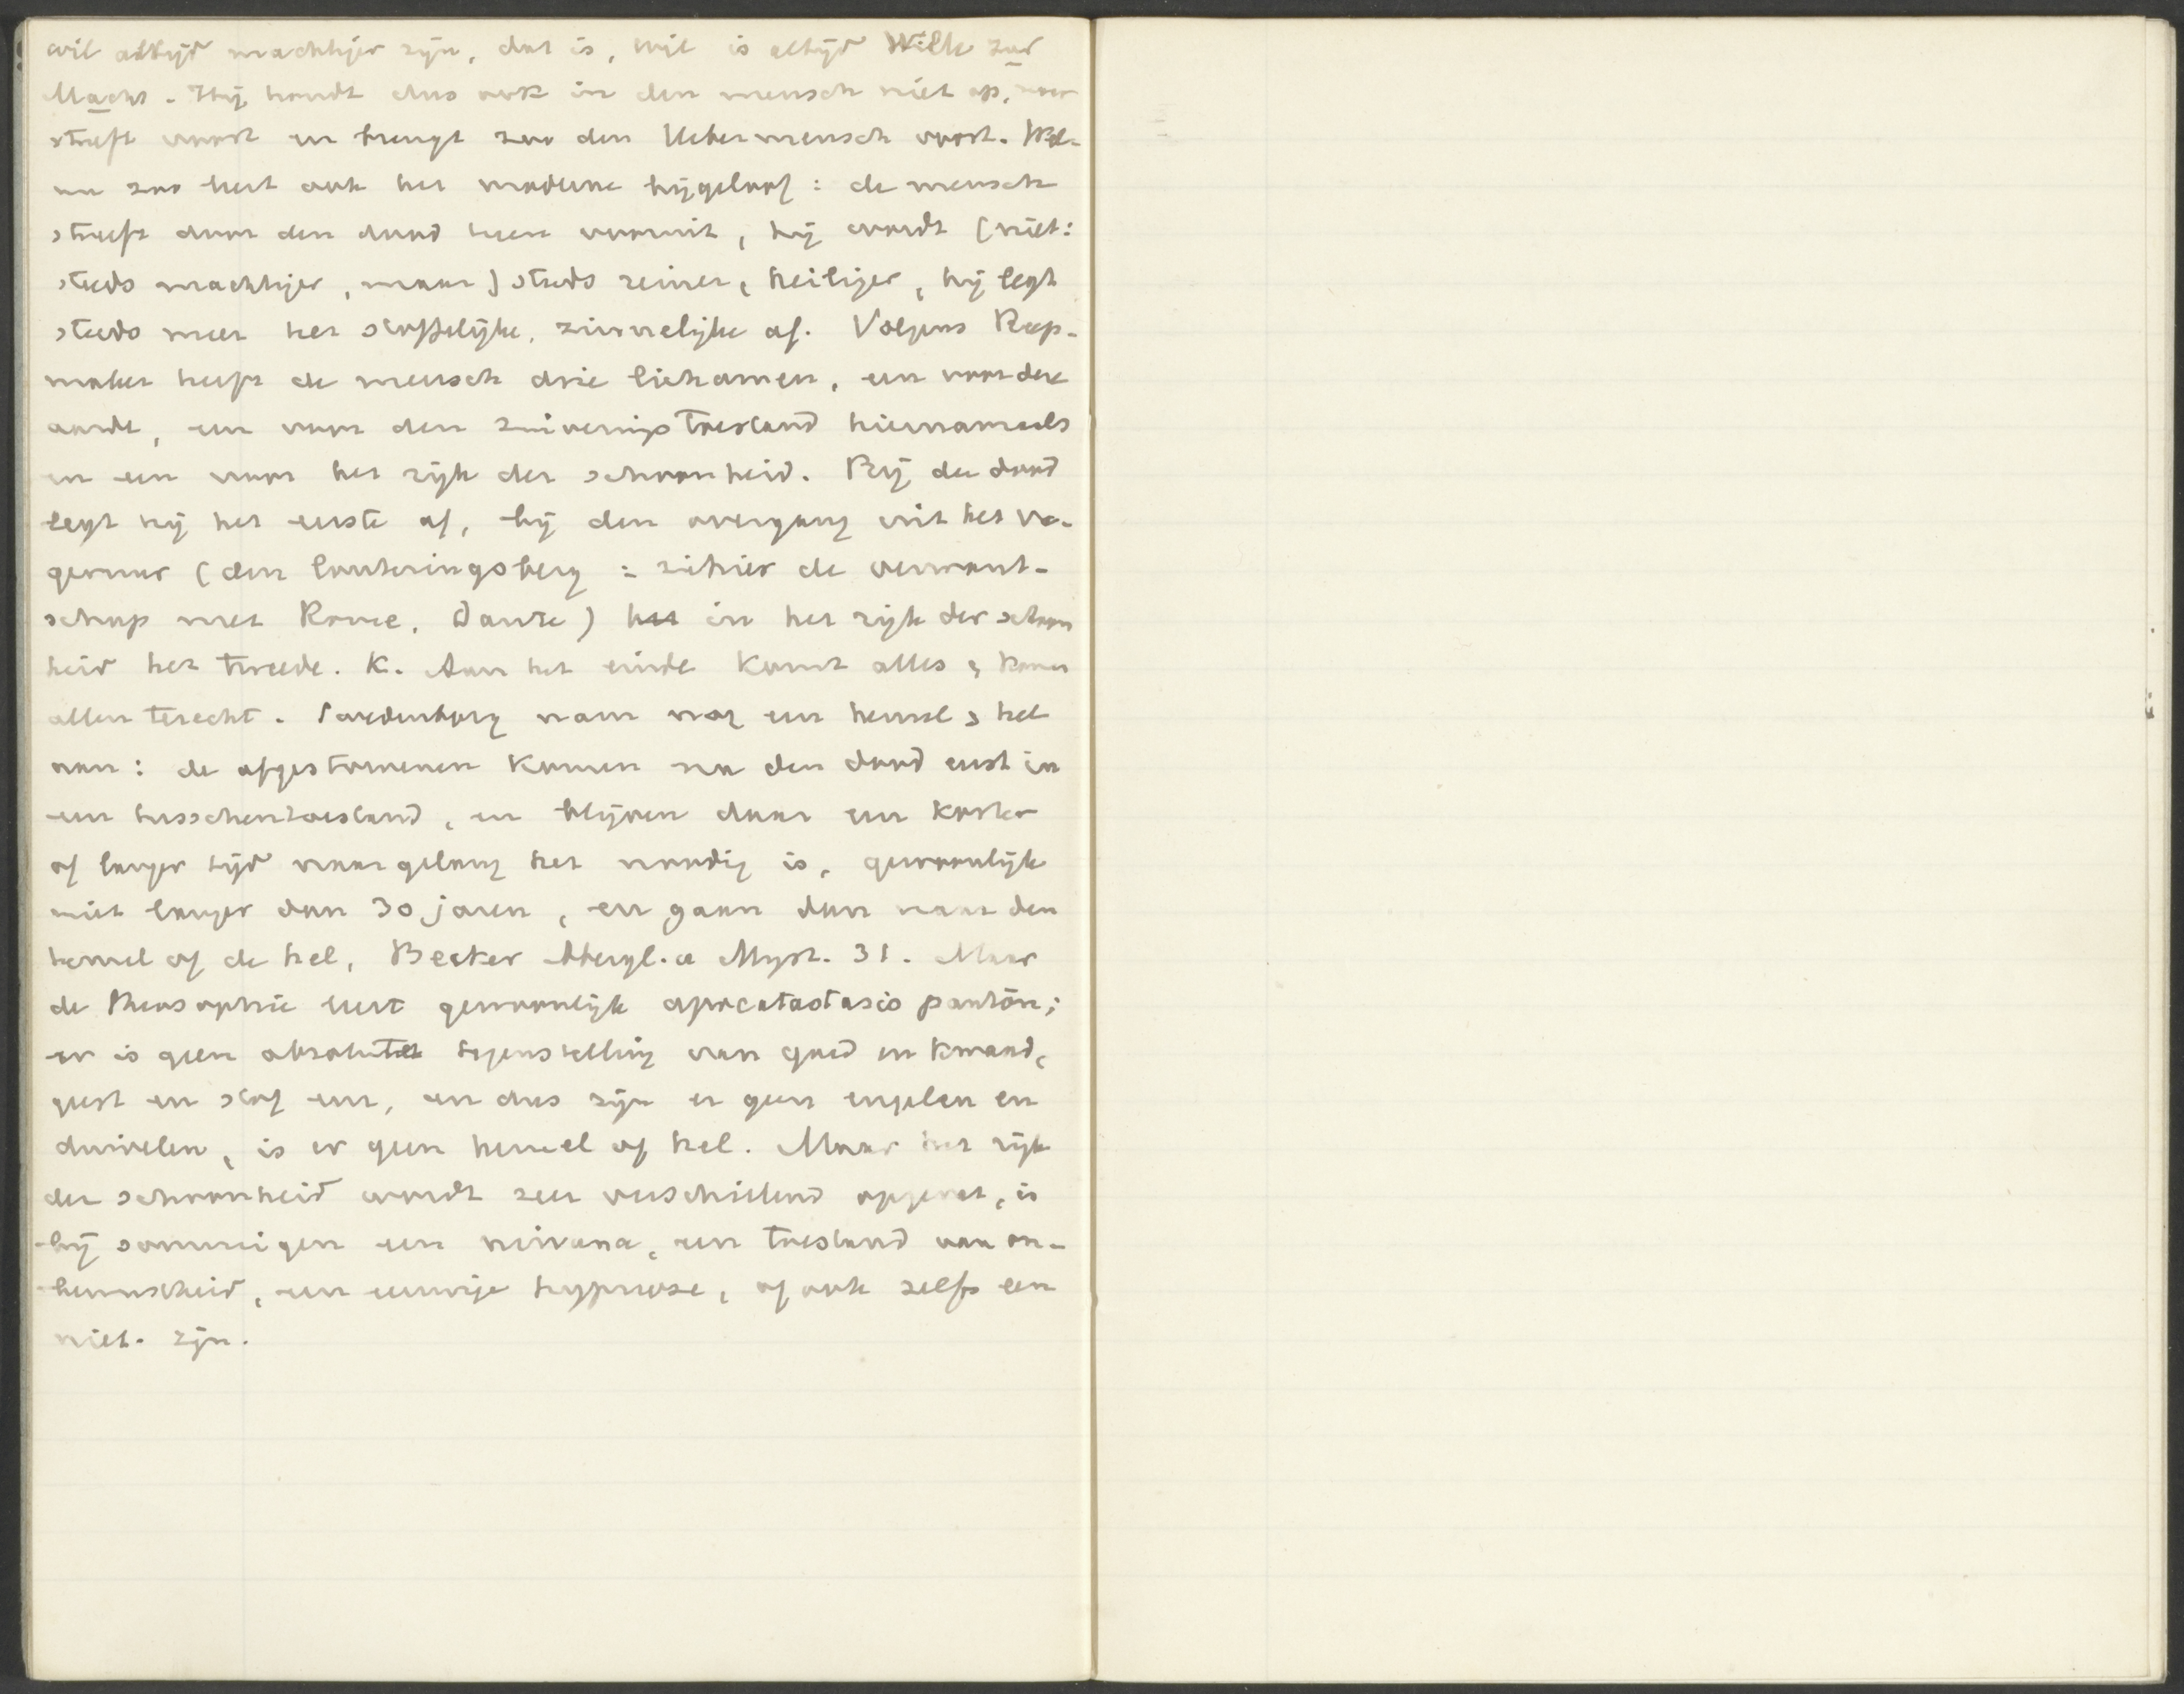 wil altijd machtiger zijn, dat is, wil is altijd Wille zur
Macht. Hij houdt dus ook in den mensch niet op, maar
streeft voort en brengt zoo den Uebermensch voort. Wel-
nu zoo leert ook het moderne bijgeloof: de mensch
streeft door den dood heen vooruit, hij wordt (niet:
steeds machtiger, maar) steds reiner, heiliger, hij legt
steeds meer het stoffelijke, zinnelijke af. Volgens Reep-
maker heeft de mensch drie lichamen, een voor deze
aarde, een voor den zuiveringstoestand hiernamaals
en een voor het rijk der schoonheid. Bij den dood
legt hij het eerste af, bij den overgang uit het va-
gevuur (den louteringsberg : ziehier de verwant-
schap met Rome, Dante) in het rijk der schoon
heid het tweede. K. Aan het einde komt alles & komen
allen terecht. Swedenborg nam nog een hemel & hel
aan: de afgestorvenen komen na den dood eerst in
een tusschentoestand, en blijven daar een korter
of langer tijd naar gelang het noodig is, gewoonlijk
niet langer dan 30 jaren, en gaan dan naar den
hemel of de hel, Becker Abergl. u Myst. 31. Maar
de theosophie leert gewoonlijk apocatastasis pantōn;
er is geen absolute tegenstelling van goed en kwaad,
geest en stof enz, en dus zijn er geen engelen en
duivelen, is er geen hemel of hel. Maar het rijk
der schoonheid wordt zeer verschillend opgevat, is
bij sommigen een nirvana, een toestand van on-
bewustheid, een eeuwige hypnose, of ook zelfs een
niet-zijn.